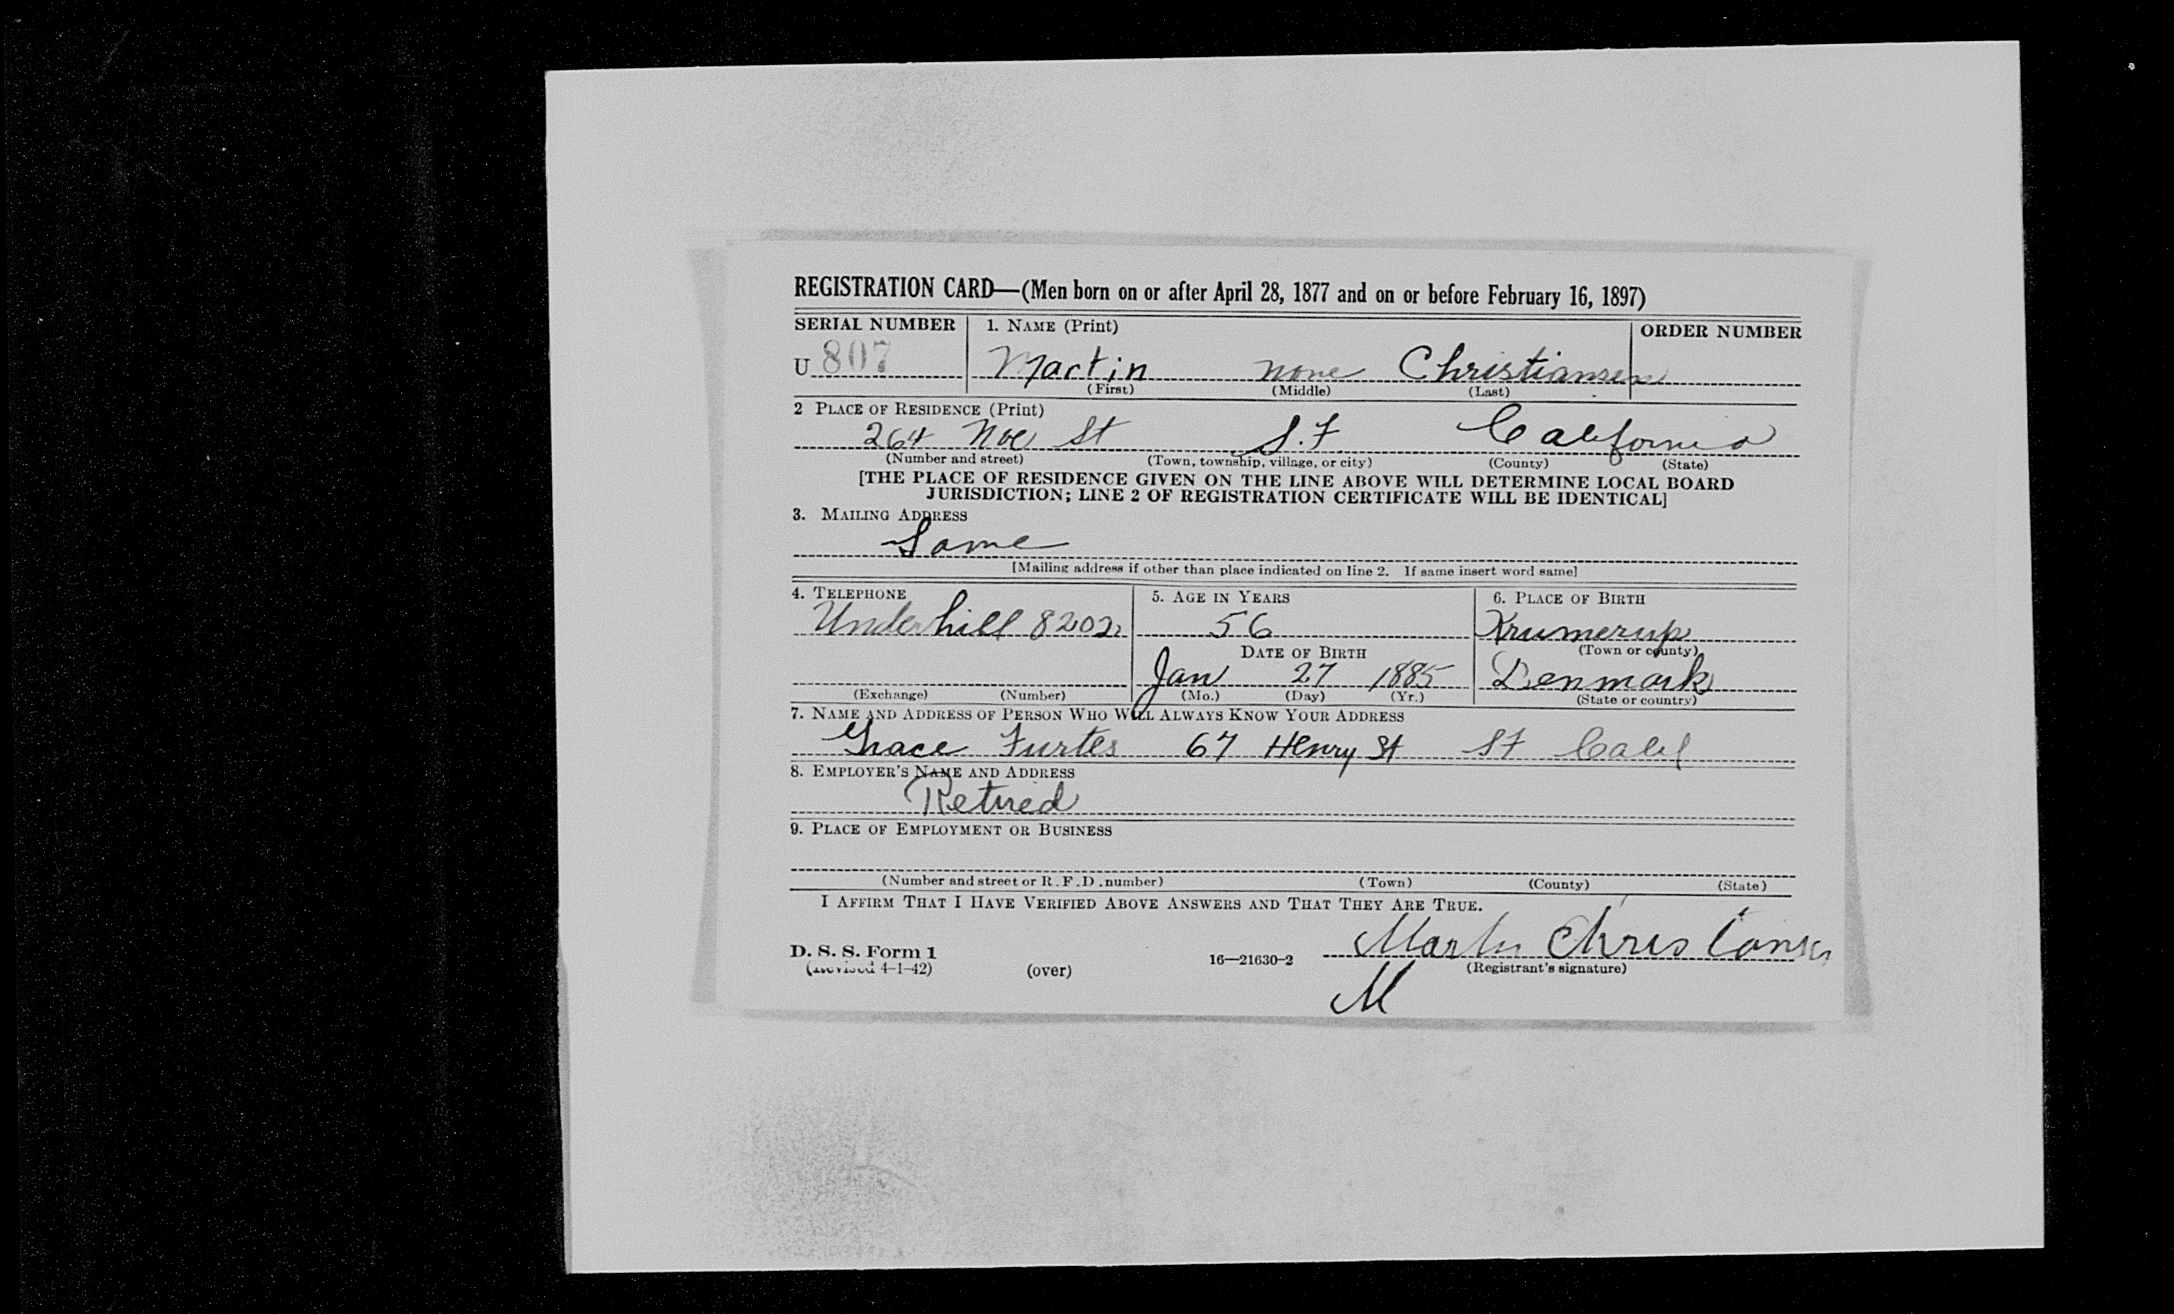 REGISTRATION CARD—(Men born on or after April 28, 1877 and on or before February 16, 1897)
SERIAL NUMBER 1. NAME (Print) ORDER NUMBER
U 807 Martin none Christiansen
(First) (Middle) (Last)
2 PLACE OF RESIDENCE (Print)
264 Noe St S.F. California
(Number and street) (Town, township, village, or city) (County) (State)
[THE PLACE OF RESIDENCE GIVEN ON THE LINE ABOVE WILL DETERMINE LOCAL BOARD
JURISDICTION; LINE 2 OF REGISTRATION CERTIFICATE WILL BE IDENTICAL]
3. MAILING ADDRESS
Same
[Mailing address if other than place indicated on line 2. If same insert word same]
4. TELEPHONE 5. AGE IN YEARS 6. PLACE OF BIRTH
Underhill 8202 56 Krumerup
DATE OF BIRTH (Town or county)
Jan 27 1885 Denmark
(Exchange) (Number) (Mo.) (Day) (Yr.) (State or country)
7. NAME AND ADDRESS OF PERSON WHO WILL ALWAYS KNOW YOUR ADDRESS
Grace Furtes 67 Henry St SF Calif
8. EMPLOYER'S NAME AND ADDRESS
Retired
9. PLACE OF EMPLOYMENT OR BUSINESS
(Number and street or R.F.D. number) (Town) (County) (State)
I AFFIRM THAT I HAVE VERIFIED ABOVE ANSWERS AND THAT THEY ARE TRUE.
Martin Christiansen
D. S. S. Form 1
(Revised 4-1-42) (over) 16—21630-2 (Registrant's signature)
M